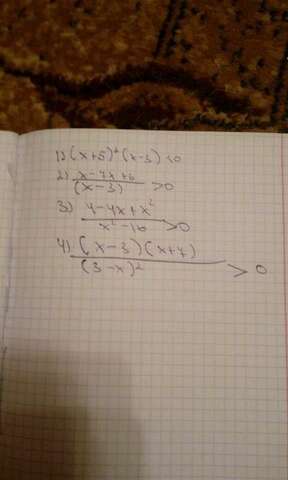 1) (x+5)² (x-3) <0
2) x-7x+6 / (x-3) >0
3) 4-4x+x² / x²-16 >0
4) (x-3)(x+7) / (3-x)² > 0